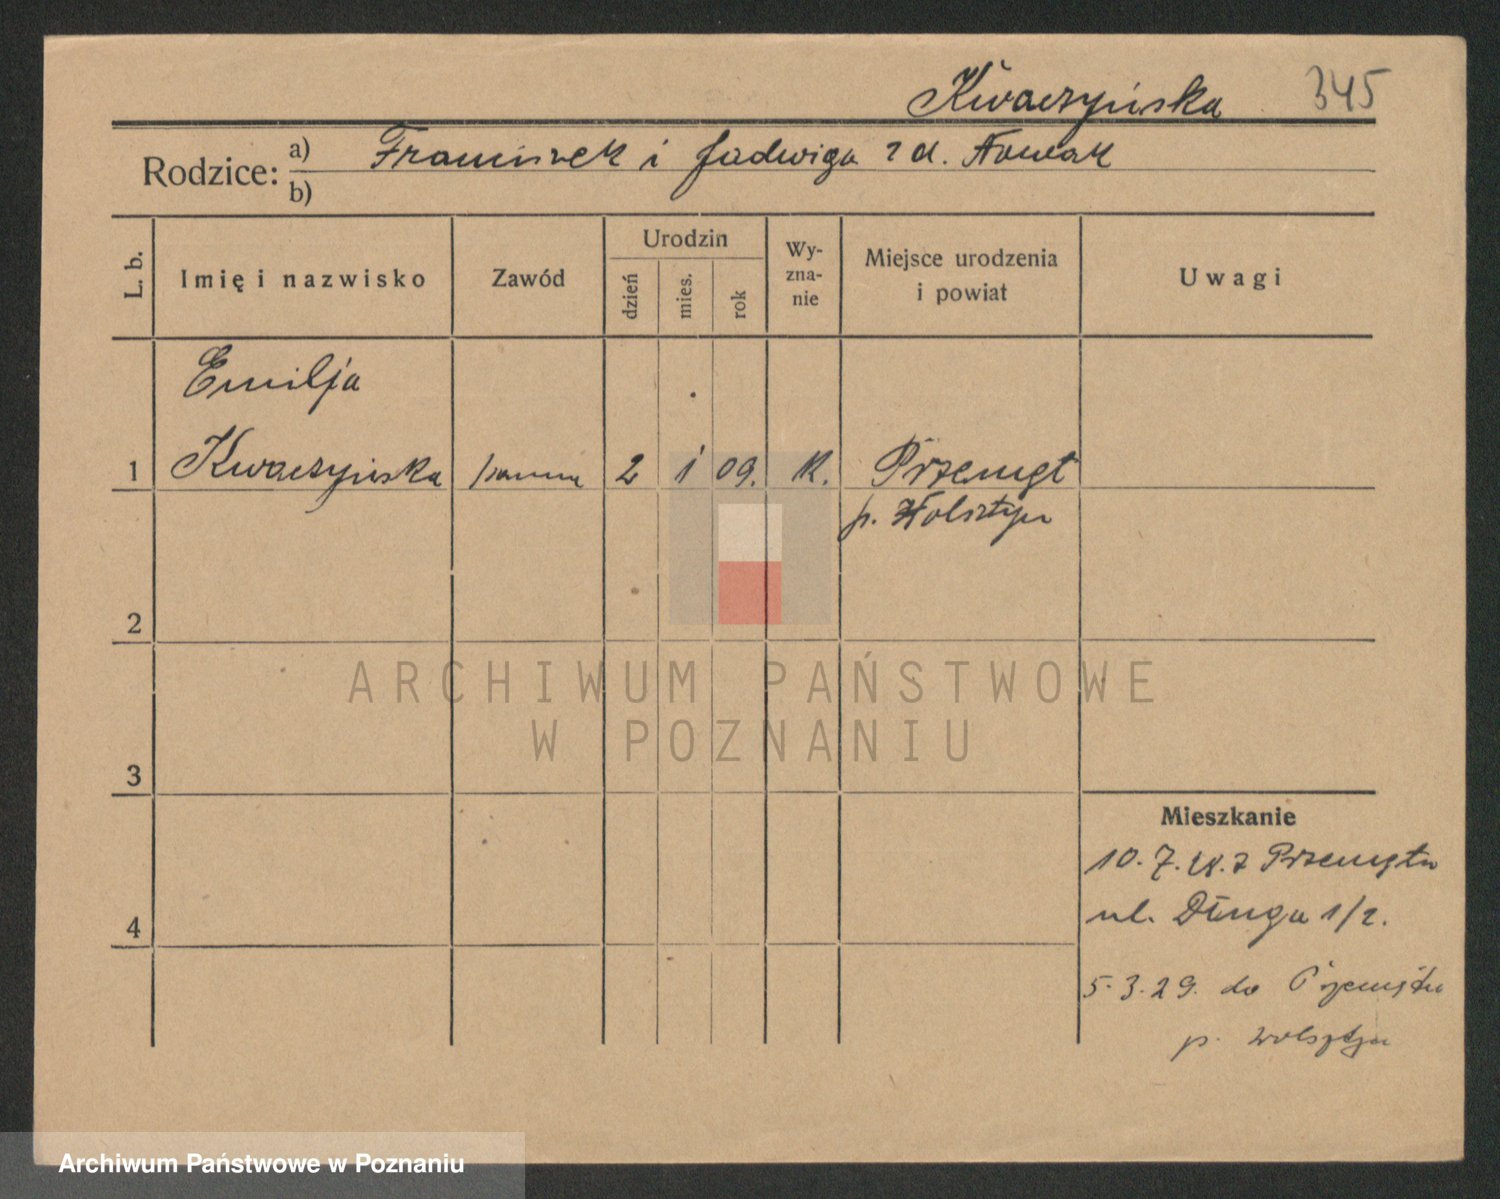 Kwaczyńska 345
Rodzice: a) Franciszek i Jadwiga z d. Nowak
b)
L. b.
Imię i nazwisko
Zawód
Urodzin
dzień
mies.
rok
Wy-
zna-
nie
Miejsce urodzenia
i powiat
Uwagi
Emilja
1 Kwaczyńska panna 2 1 09. K. Przemęt
p. Wolsztyn
2
3
4
Mieszkanie
10.7.28. z Przemętu
ul. Długa 1/2.
5.3.29. do Przemętu
p. Wolsztyn
ARCHIWUM PAŃSTWOWE
W POZNANIU
Archiwum Państwowe w Poznaniu